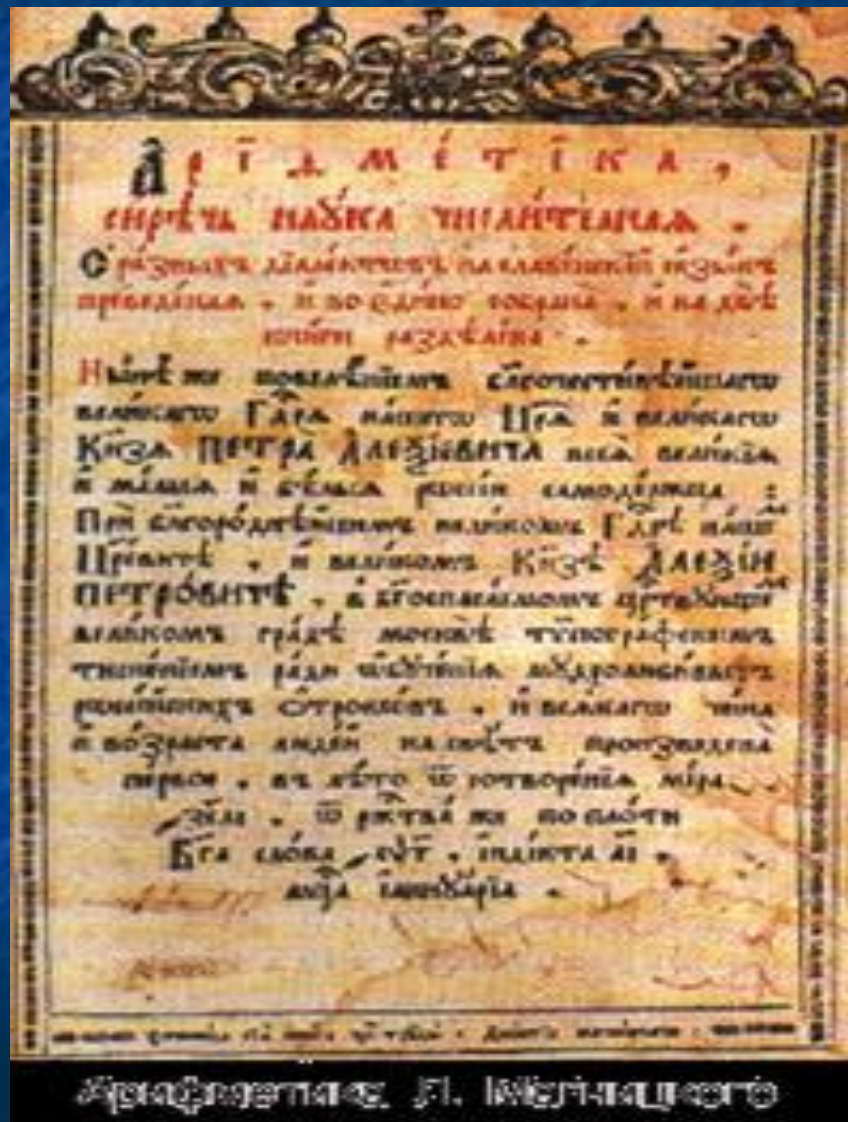 Арїѳме́тїка,
сирѣ́чь наꙋ́ка числи́телная.
С ра́зныхъ дїале́ктѡвъ на славе́нскїй ѧзы́къ
преведе́наѧ, и҆ во є҆ди́но собрана̀, и҆ на двѣ̀
кни́ги раздѣле́на.
Ны́нѣ же повелѣ́нїемъ бл҃гочести́вѣйшагѡ
вели́кагѡ Гд҃рѧ на́шегѡ Цр҃ѧ̀ и҆ вели́кагѡ
Кн҃зѧ ПЕТРА̀ А҆ЛЕѮІ́ЕВИЧА всеѧ̀ вели́кїѧ
и҆ ма́лыѧ и҆ бѣ́лыѧ рѡссі́и самоде́ржца :
Прѝ бл҃горо́днѣйшемъ вели́комъ Гд҃рѣ на́шемъ
Цр҃е́вичѣ, и҆ вели́комъ Кн҃зѣ А҆ЛЕѮІ́И
ПЕТРО́ВИЧѢ, в̾ бг҃оспаса́емомъ
вели́комъ гра́дѣ москвѣ̀ тѷпогра́фскимъ
тисне́нїемъ ра́ди ѡ҆бꙋче́нїѧ мꙋдролюби́выхъ
рѡссі́йскихъ ѻ҆́трокѡвъ, и҆ всѧ́кагѡ чи́на
и҆ во́зраста люде́й на свѣ́тъ произведена̀
пе́рвое, въ лѣ́то ѿ сотворе́нїѧ мі́ра
ѿ рж҃тва́ же по пло́ти
Бг҃а сло́ва і҆нді́кта а҃і.
мц҃а і҆аннꙋа́рїа.
Арифметика Л. Магницкого